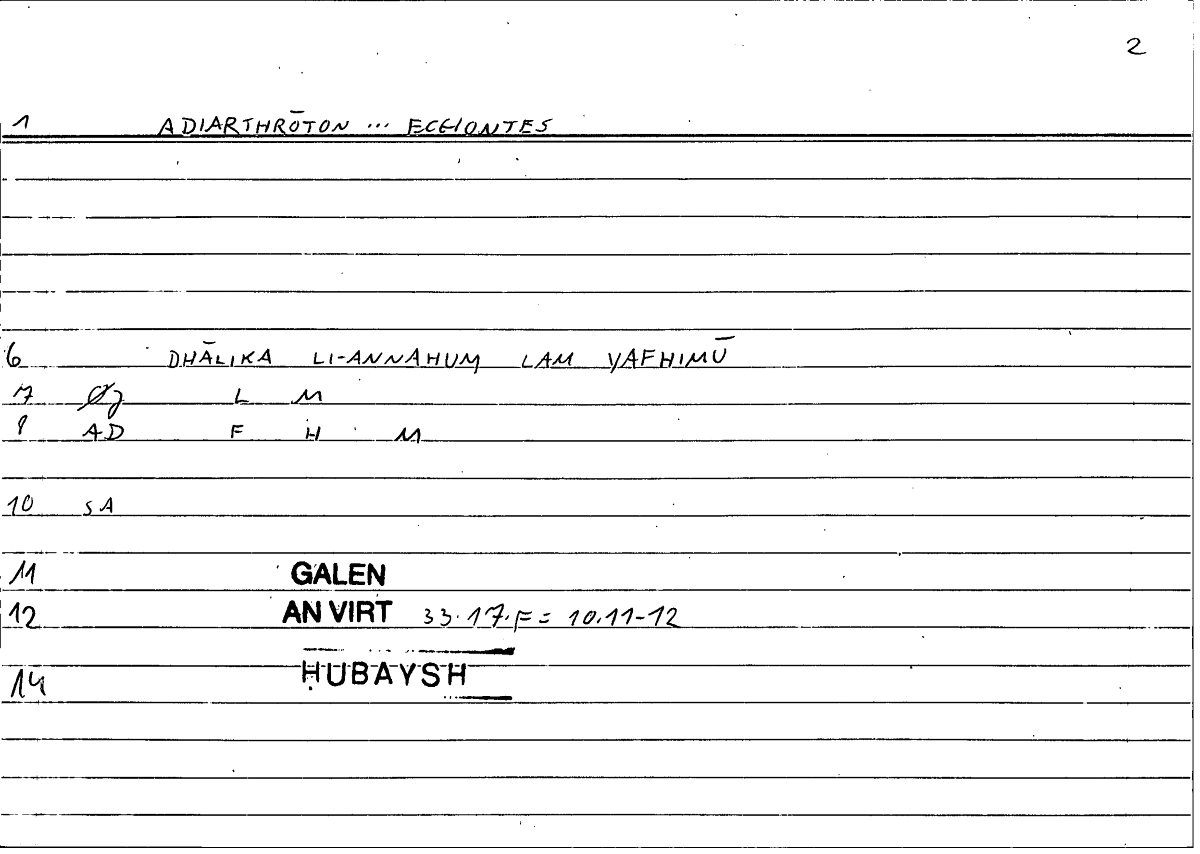 2
1 ADIARTHRŌTON ... ECGIONTES
6 DHĀLIKA LI-ANNAHUM LAM YAFHIMŪ
7 L M
8 AD F H M
10 SA
11 GALEN
12 AN VIRT 33.17.F = 10.11-12
14 ḤUBAYSH